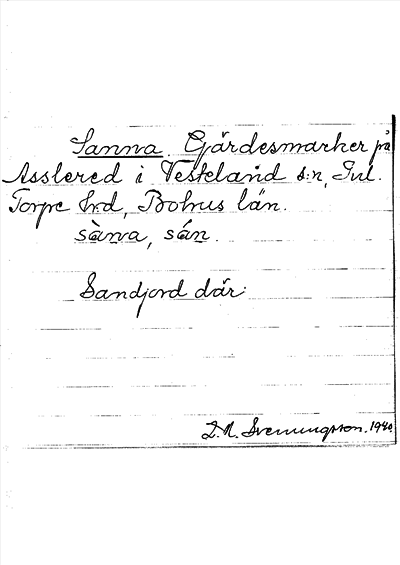 Sanna. Gärdesmarker på
Asslered i Veskeland s:n, Inl.
Torpe hrd, Bohus län.
sàna, sán.
Sandjord där.
L. A. Svenungsson. 1940